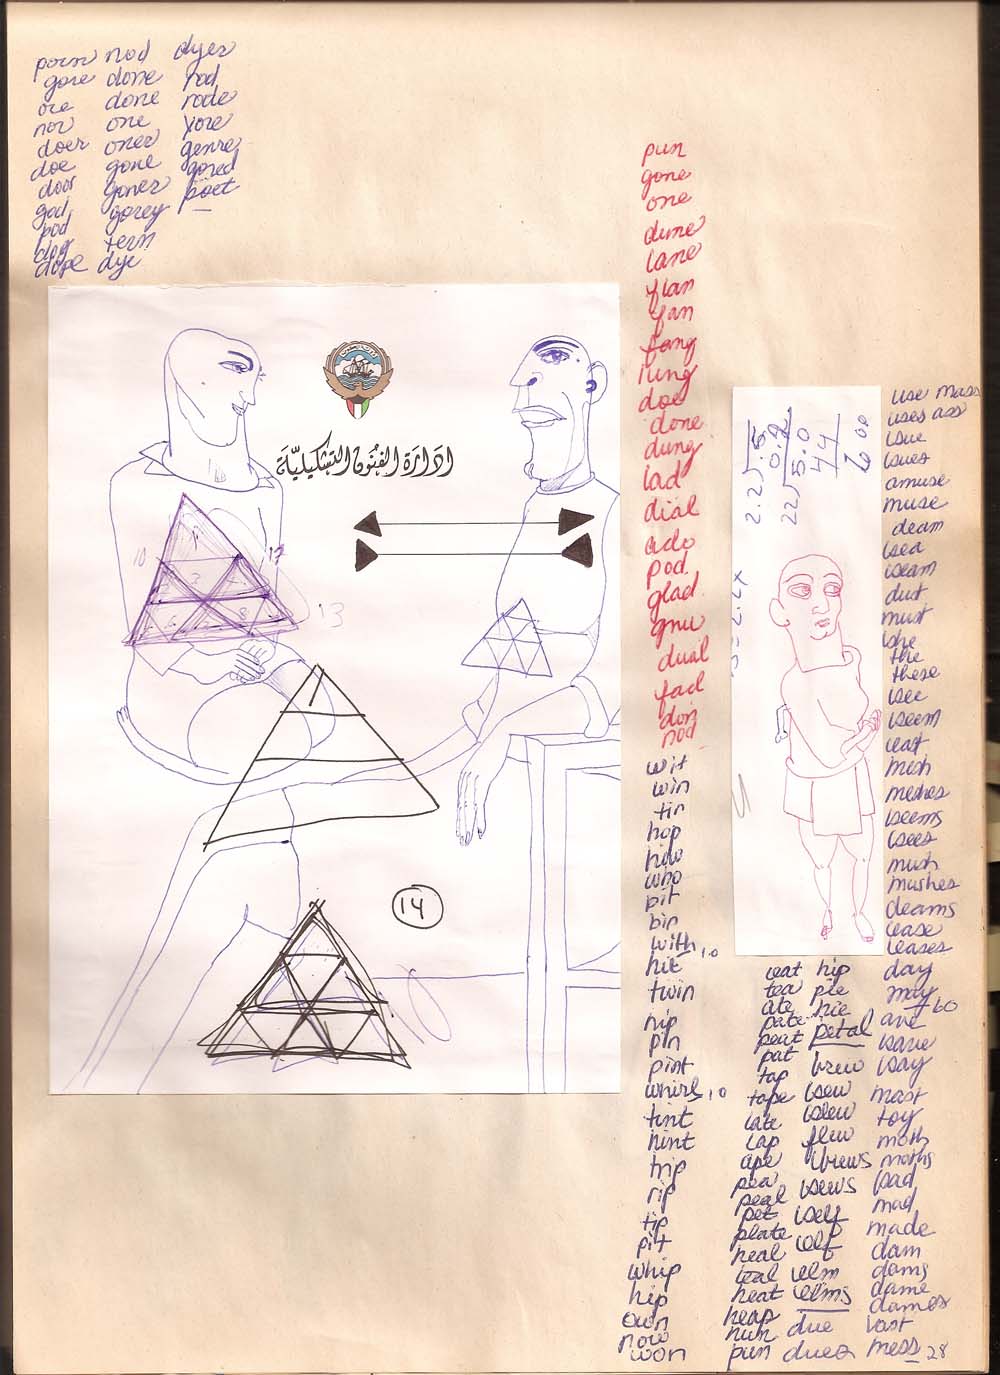 porn nod dyer
gore done rod
ore done rode
nor one yore
doer oner genre
doe gone gored
door goner poet
god gorey
pod term
dog
dope dye
ادارة الفنون التشكيلية
10
17
13
14
pun
gone
one
dune
lane
flan
fan
fang
lung
doe
done
dung
lad
dial
ado
pod
glad
gnu
dual
fad
don
nod
wit
win
tin
hop
how
who
pit
bin
with 10
hit
twin
nip
pin
pint
whirl 10
tint
hint
trip
rip
tip
pit
whip
hip
own
now
won
2.2 .5
0.2
22 5.0
44
eat hip
tea pie
ate hie
pate
peat petal
pat brew
tap sew
tape slew
late flew
lap brews
ape sews
pea self
peal elf
pet elm
plate elms
heal due
teal dues
heat
heap
nun
pun
use mass
uses ass
sue
sues
amuse
muse
deam
sea
seam
dust
must
she
the
these
see
seem
east
mesh
meshes
seems
sees
mush
mushes
deams
ease
eases
day
may 60
ave
save
say
mast
toy
moth
moths
sad
mad
made
dam
dams
dame
dames
vast
mess 28